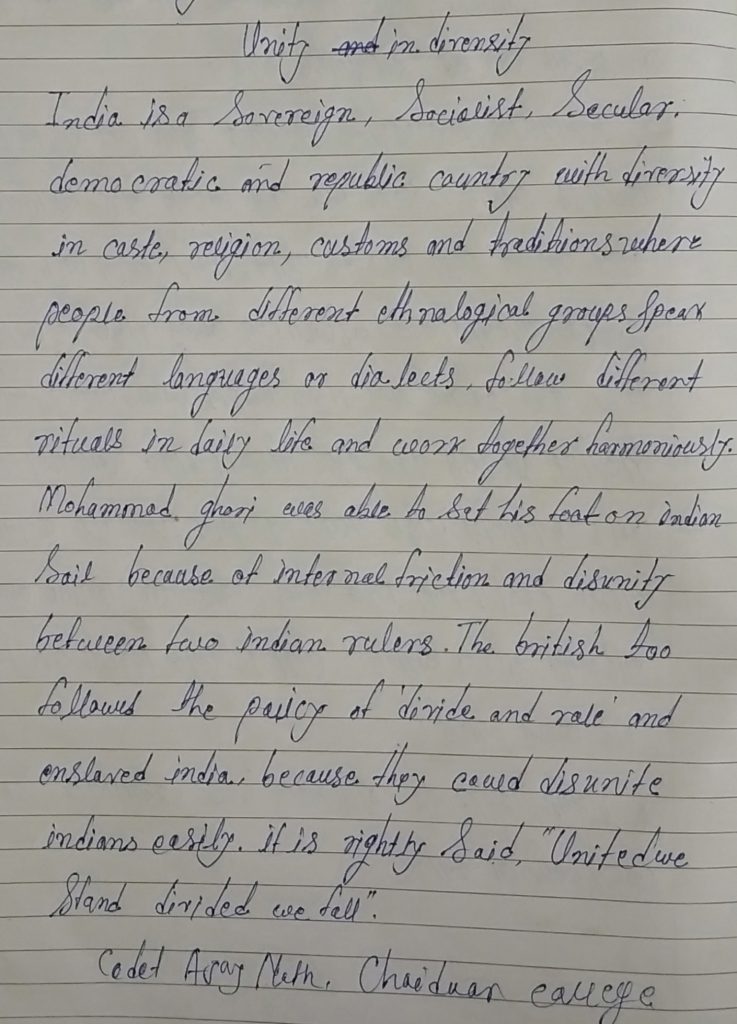 Unity and in diversity
India is a Sovereign, Socialist, Secular.
democratic and republic country with diversity
in caste, religion, customs and traditions where
people from different ethnalogical groups speak
different languages or dialects, follow different
rituals in daily life and work together harmoniously.
Mohammad ghori was able to set his foot on indian
Soil because of internal friction and disunity
between two indian rulers. The british too
followed the policy of 'divide and rule' and
enslaved india, because they could disunite
indians easily. it is rightly Said, "United we
Stand divided we fall".
Cadet Nath, college